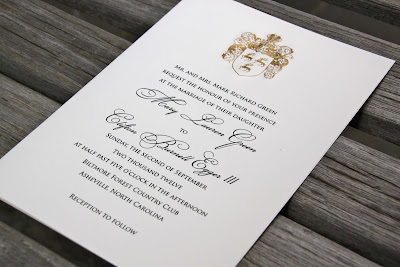 Mr. and Mrs. Mark Richard Green
request the honour of your presence
at the marriage of their daughter
Mary Lauren Green
to
Clifton Burnell Egger III
Sunday, the second of September
Two thousand twelve
at half past five o'clock in the afternoon
Biltmore Forest Country Club
Asheville, North Carolina
Reception to follow